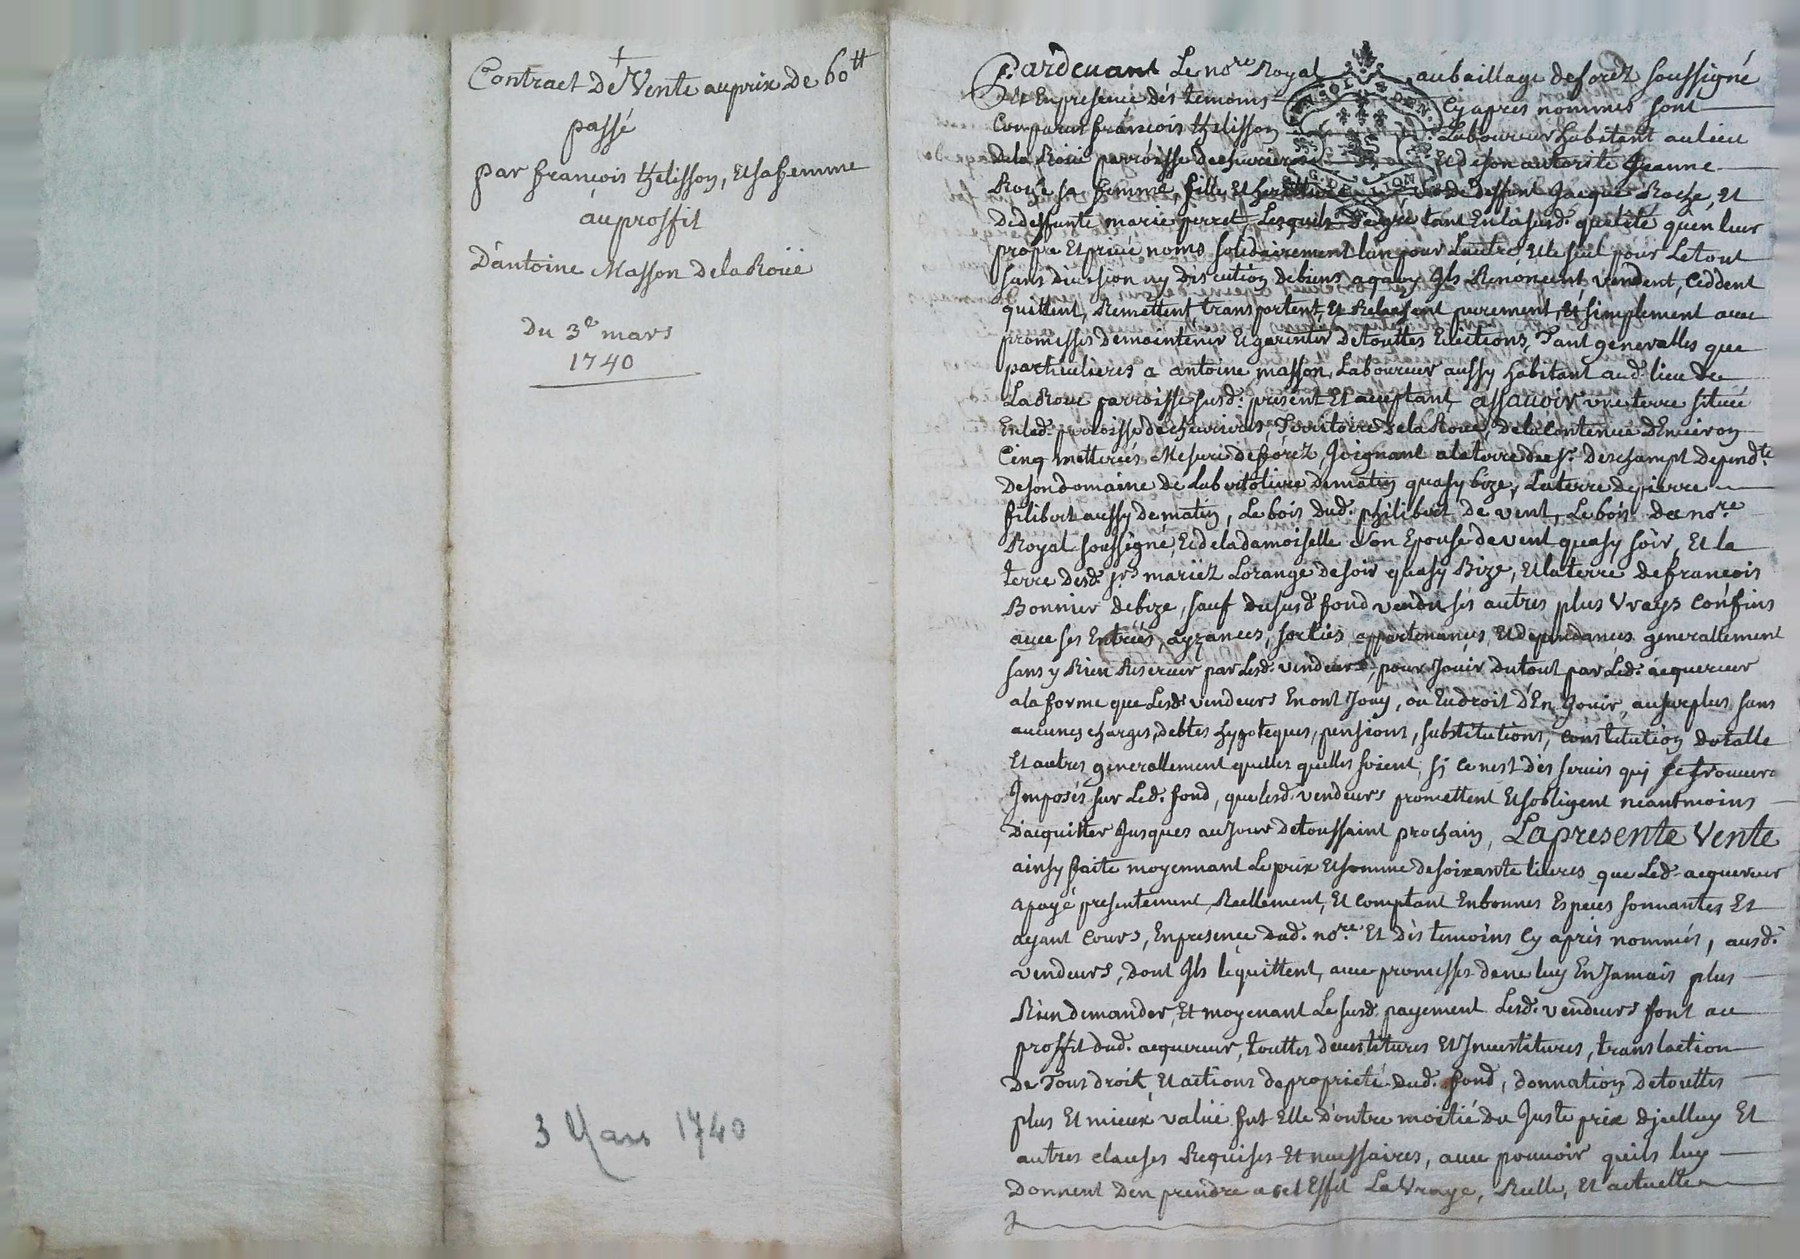 Contract De Vente au prix de 60tt
passé
par françois thelisson, Et sa femme
au proffit
D'antoine Masson de la Roüe
Du 3e mars
1740
3 Mars 1740
Pardevant Le nore Royal au bailliage de forez soussigné
Et En presence des temoins Cy apres nommés sont
Comparus françois thelisson Laboureur habitant au lieu
de la Roüe parroisse de Et de son autorité Jeanne
Roche sa femme, fille Et de deffunt Jacque Roche, Et
de deffunte marie perret, Lesquels de gré tant En la susd. qualité qu'en leur
propre Et privé noms solidairement l'un pour L'autre Et le seul pour Le tout
sans division ny discution de biens a quoy Ils Renoncent, vendent, Ceddent
quittent, Remettent, transportent, Et Relaissent purement, Et simplement avec
promesses de maintenir Et garentir De touttes Evictions, Tant generalles que
particulieres a antoine masson, Laboureur aussy habitant aud. lieu de
La Roue parroisse susd. présent Et acceptant assavoir une terre située
En lad. parroisse de Territoire de la Roue, de la Contenue D'Environ
Cinq metterées Mesure de forez Joignant a la terre du sr. deschampt depend.te
De son domaine de de matin quasy bize, La terre de pierre
filibert aussy de matin, Le bois dud. philibert de vent, Le bois du nore
Royal soussigné, Et de la damoiselle son Epouse de vent quasy soir, Et la
terre desd. mariez Lorange de soir quasy Bize, Et la terre de françois
Bonnier de bize, sauf du susd. fond vendu ses autres plus Vrays Confins
avec ses Entrées, ayzances, sorties, appartenances, Et dependances generallement
sans y Rien Reserver par Lesd. vendeurs, pour Jouir du tout par Led. acquereur
a la forme que Lesd. vendeurs En ont Jouy, ou Eu droit d'En Jouir, au surplus sans
aucunes charges, debtes hypoteques, pensions, substitutions, constitution dotalle
Et autres generallement quelles quelles soient, sy ce nest des servis quy se trouvera
Imposés sur Led. fond, que lesd. vendeurs promettent Et sobligent neantmoins
d'acquitter Jusques au Jour de toussaint prochain, La presente Vente
ainsy faite moyennant Le prix Et somme de soixante livres que Led. acquereur
a payé presentement, Reellement, Et comptant En bonnes Especes sonnantes Et
ayant Cours, En presence dud. nore. Et des temoins Cy après nommés, ausd.
vendeurs, dont Ils le quittent, avec promesses de ne luy En Jamais plus
Rien demander, Et moyenant Le susd. payement Lesd. vendeurs font au
proffit dud. acquereur, touttes devestitures Et Investitures, translaction
De Tous droit, Et actions de propriété dud. fond, donnation de touttes
plus Et mieux valüe fut Elle d'outre moitié du Juste prix d'jcelluy Et
autres clauses Requises Et necessaires, avec pouvoir qu'ils luy
Donnent d'en prendre a cet Effet La Vraye, Reelle, Et actuelle